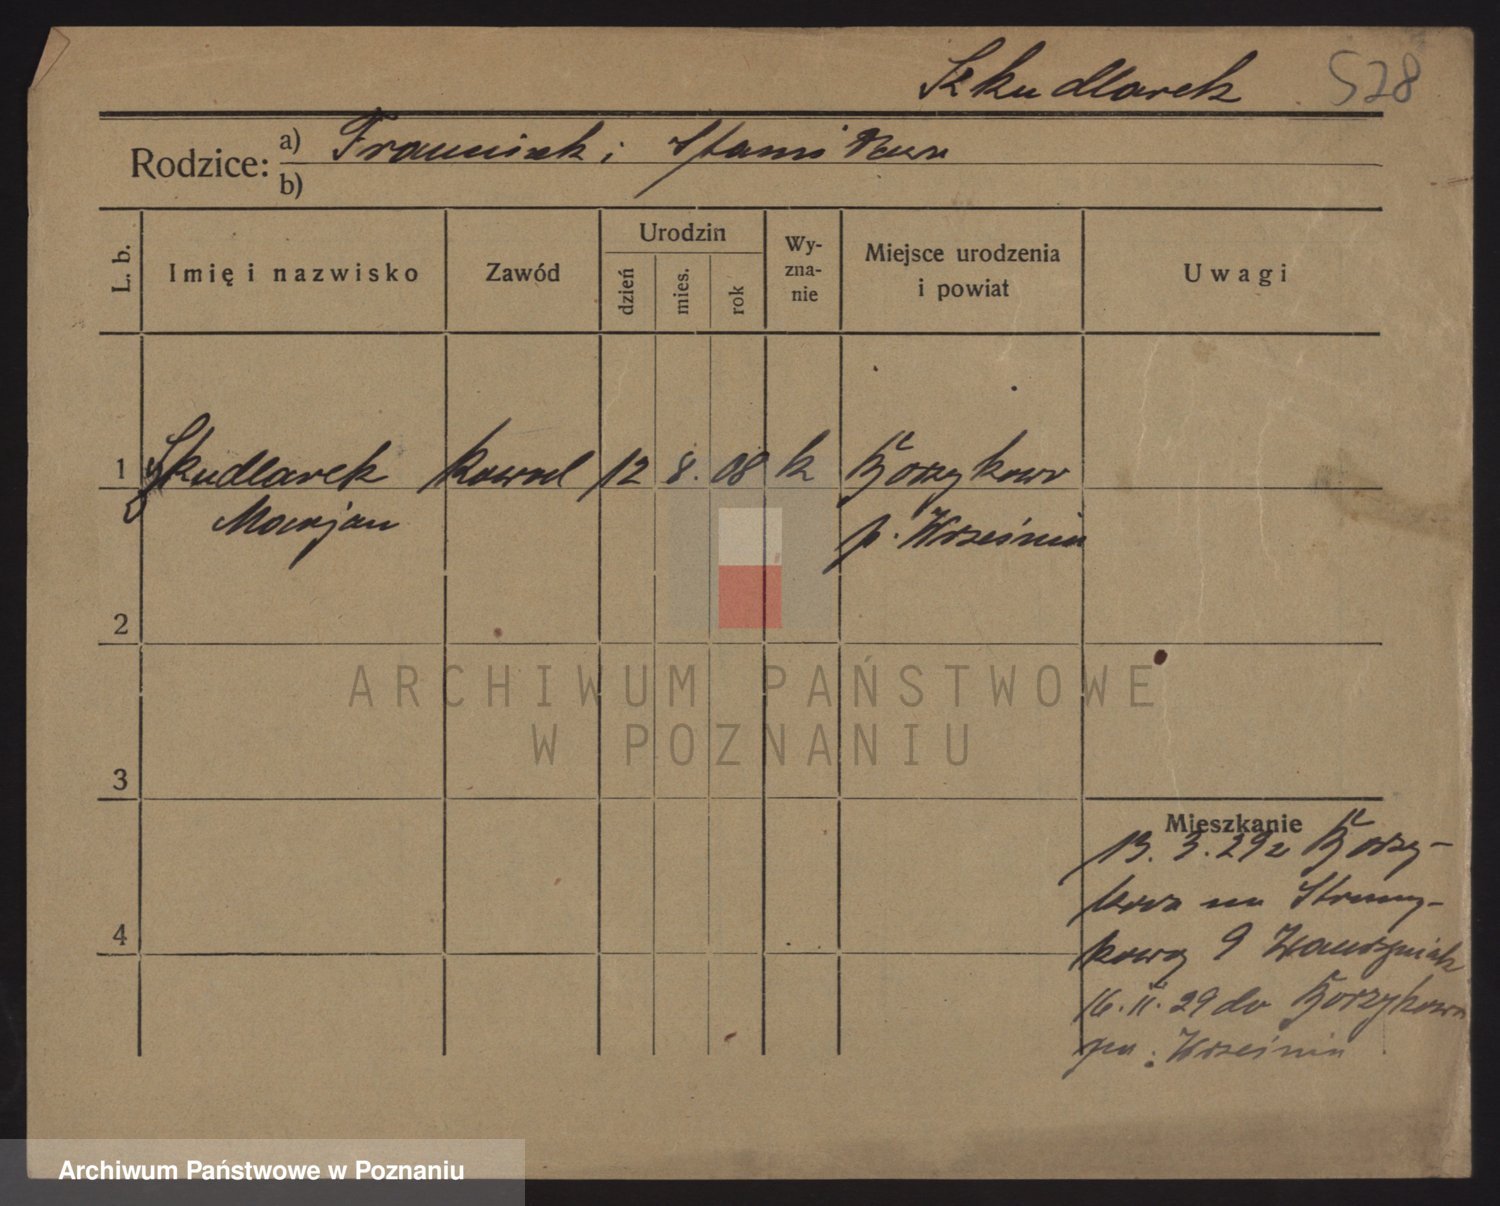 Szkudlarek 528
Rodzice: a) Franciszek i Stanisława
b)
L. b. Imię i nazwisko Zawód Urodzin dzień mies. rok Wy-zna-nie Miejsce urodzenia i powiat Uwagi
1 Szkudlarek kowal 12 8. 08 k Gorzykowo
Marjan p. Września
2
3
4
Mieszkanie
13. 3. 29 z Gorzy-
kowa na Strumy-
kową 9
16. 11. 29 do Gorzykowa
pow. Września
ARCHIWUM PAŃSTWOWE
W POZNANIU
Archiwum Państwowe w Poznaniu